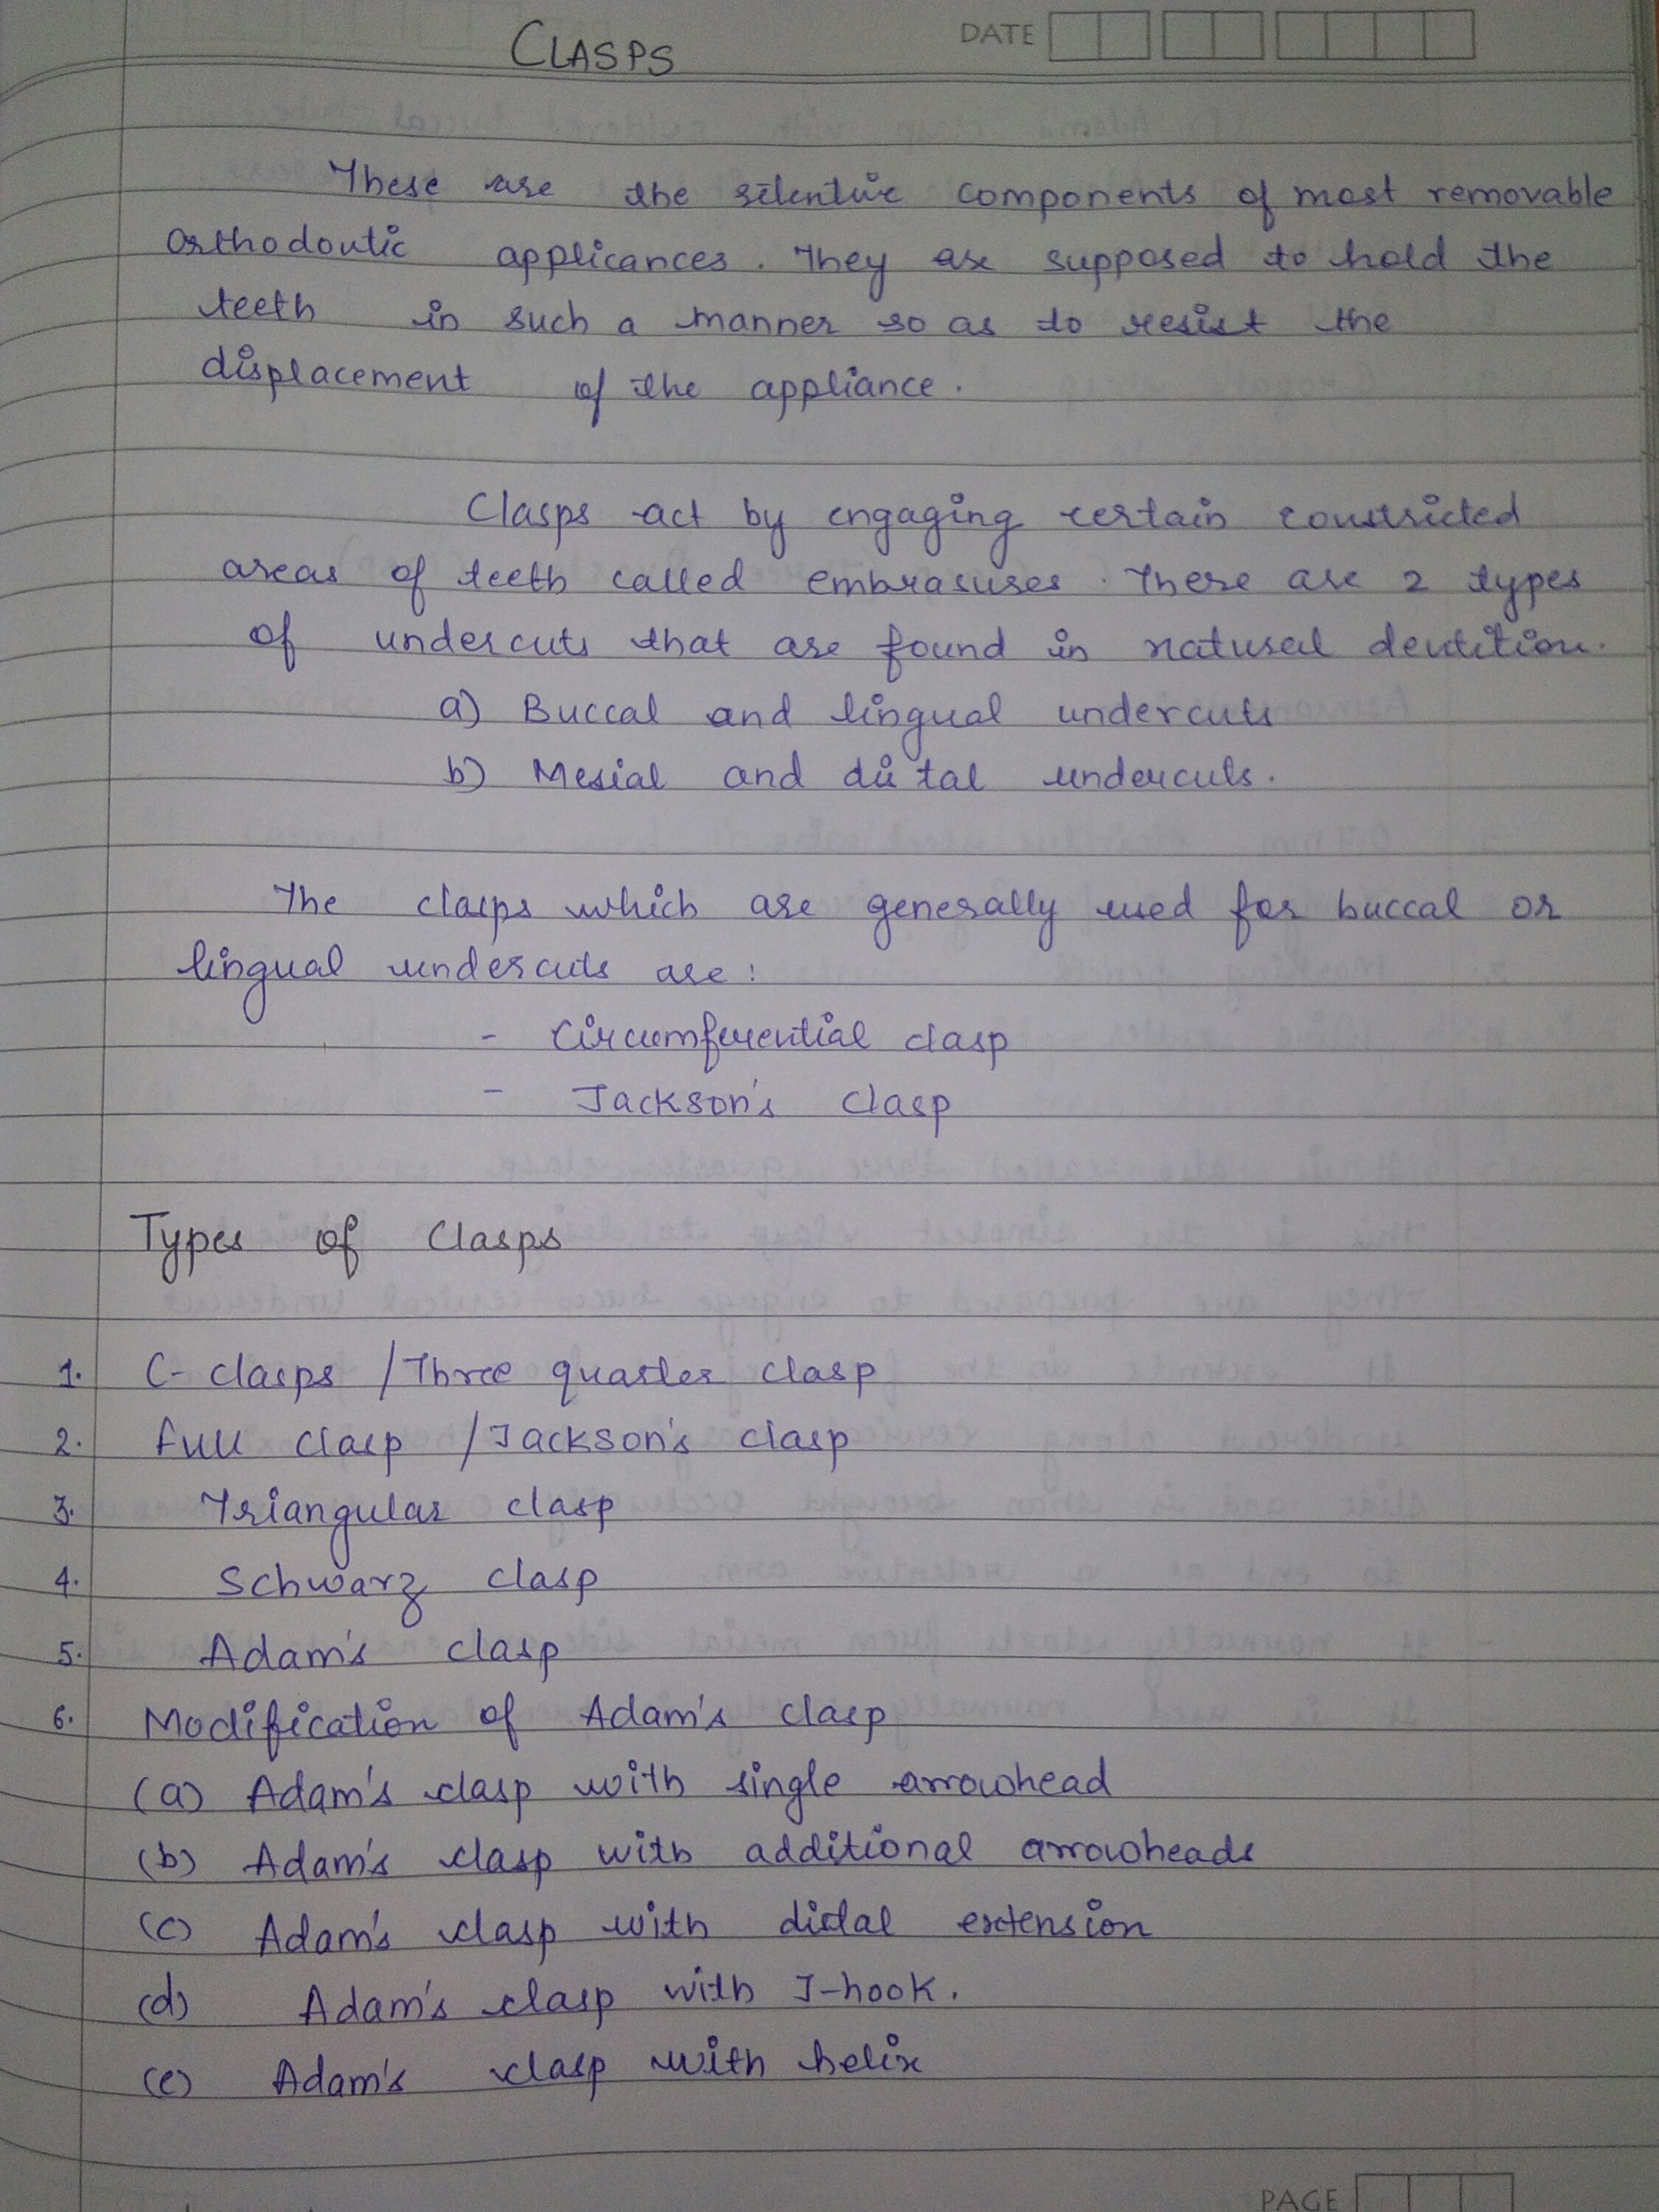 CLASPS
DATE
These are the retentive components of most removable
orthodontic applicances. They are supposed to hold the
teeth in such a manner so as to resist the
displacement of the appliance.
Clasps act by engaging certain constricted
areas of teeth called embrasures. There are 2 types
of undercuts that are found in natural dentition.
a) Buccal and lingual undercuts
b) Mesial and distal undercuts.
The clasps which are generally used for buccal or
lingual undercuts are:
- Circumferential clasp
- Jackson's clasp
Types of Clasps
1. C-clasps / Three quarter clasp
2. Full clasp / Jackson's clasp
3. Triangular clasp
4. Schwarz clasp
5. Adam's clasp
6. Modification of Adam's clasp
(a) Adam's clasp with single arrowhead
(b) Adam's clasp with additional arrowheads
(c) Adam's clasp with distal extension
(d) Adam's clasp with J-hook.
(e) Adam's clasp with helix
PAGE